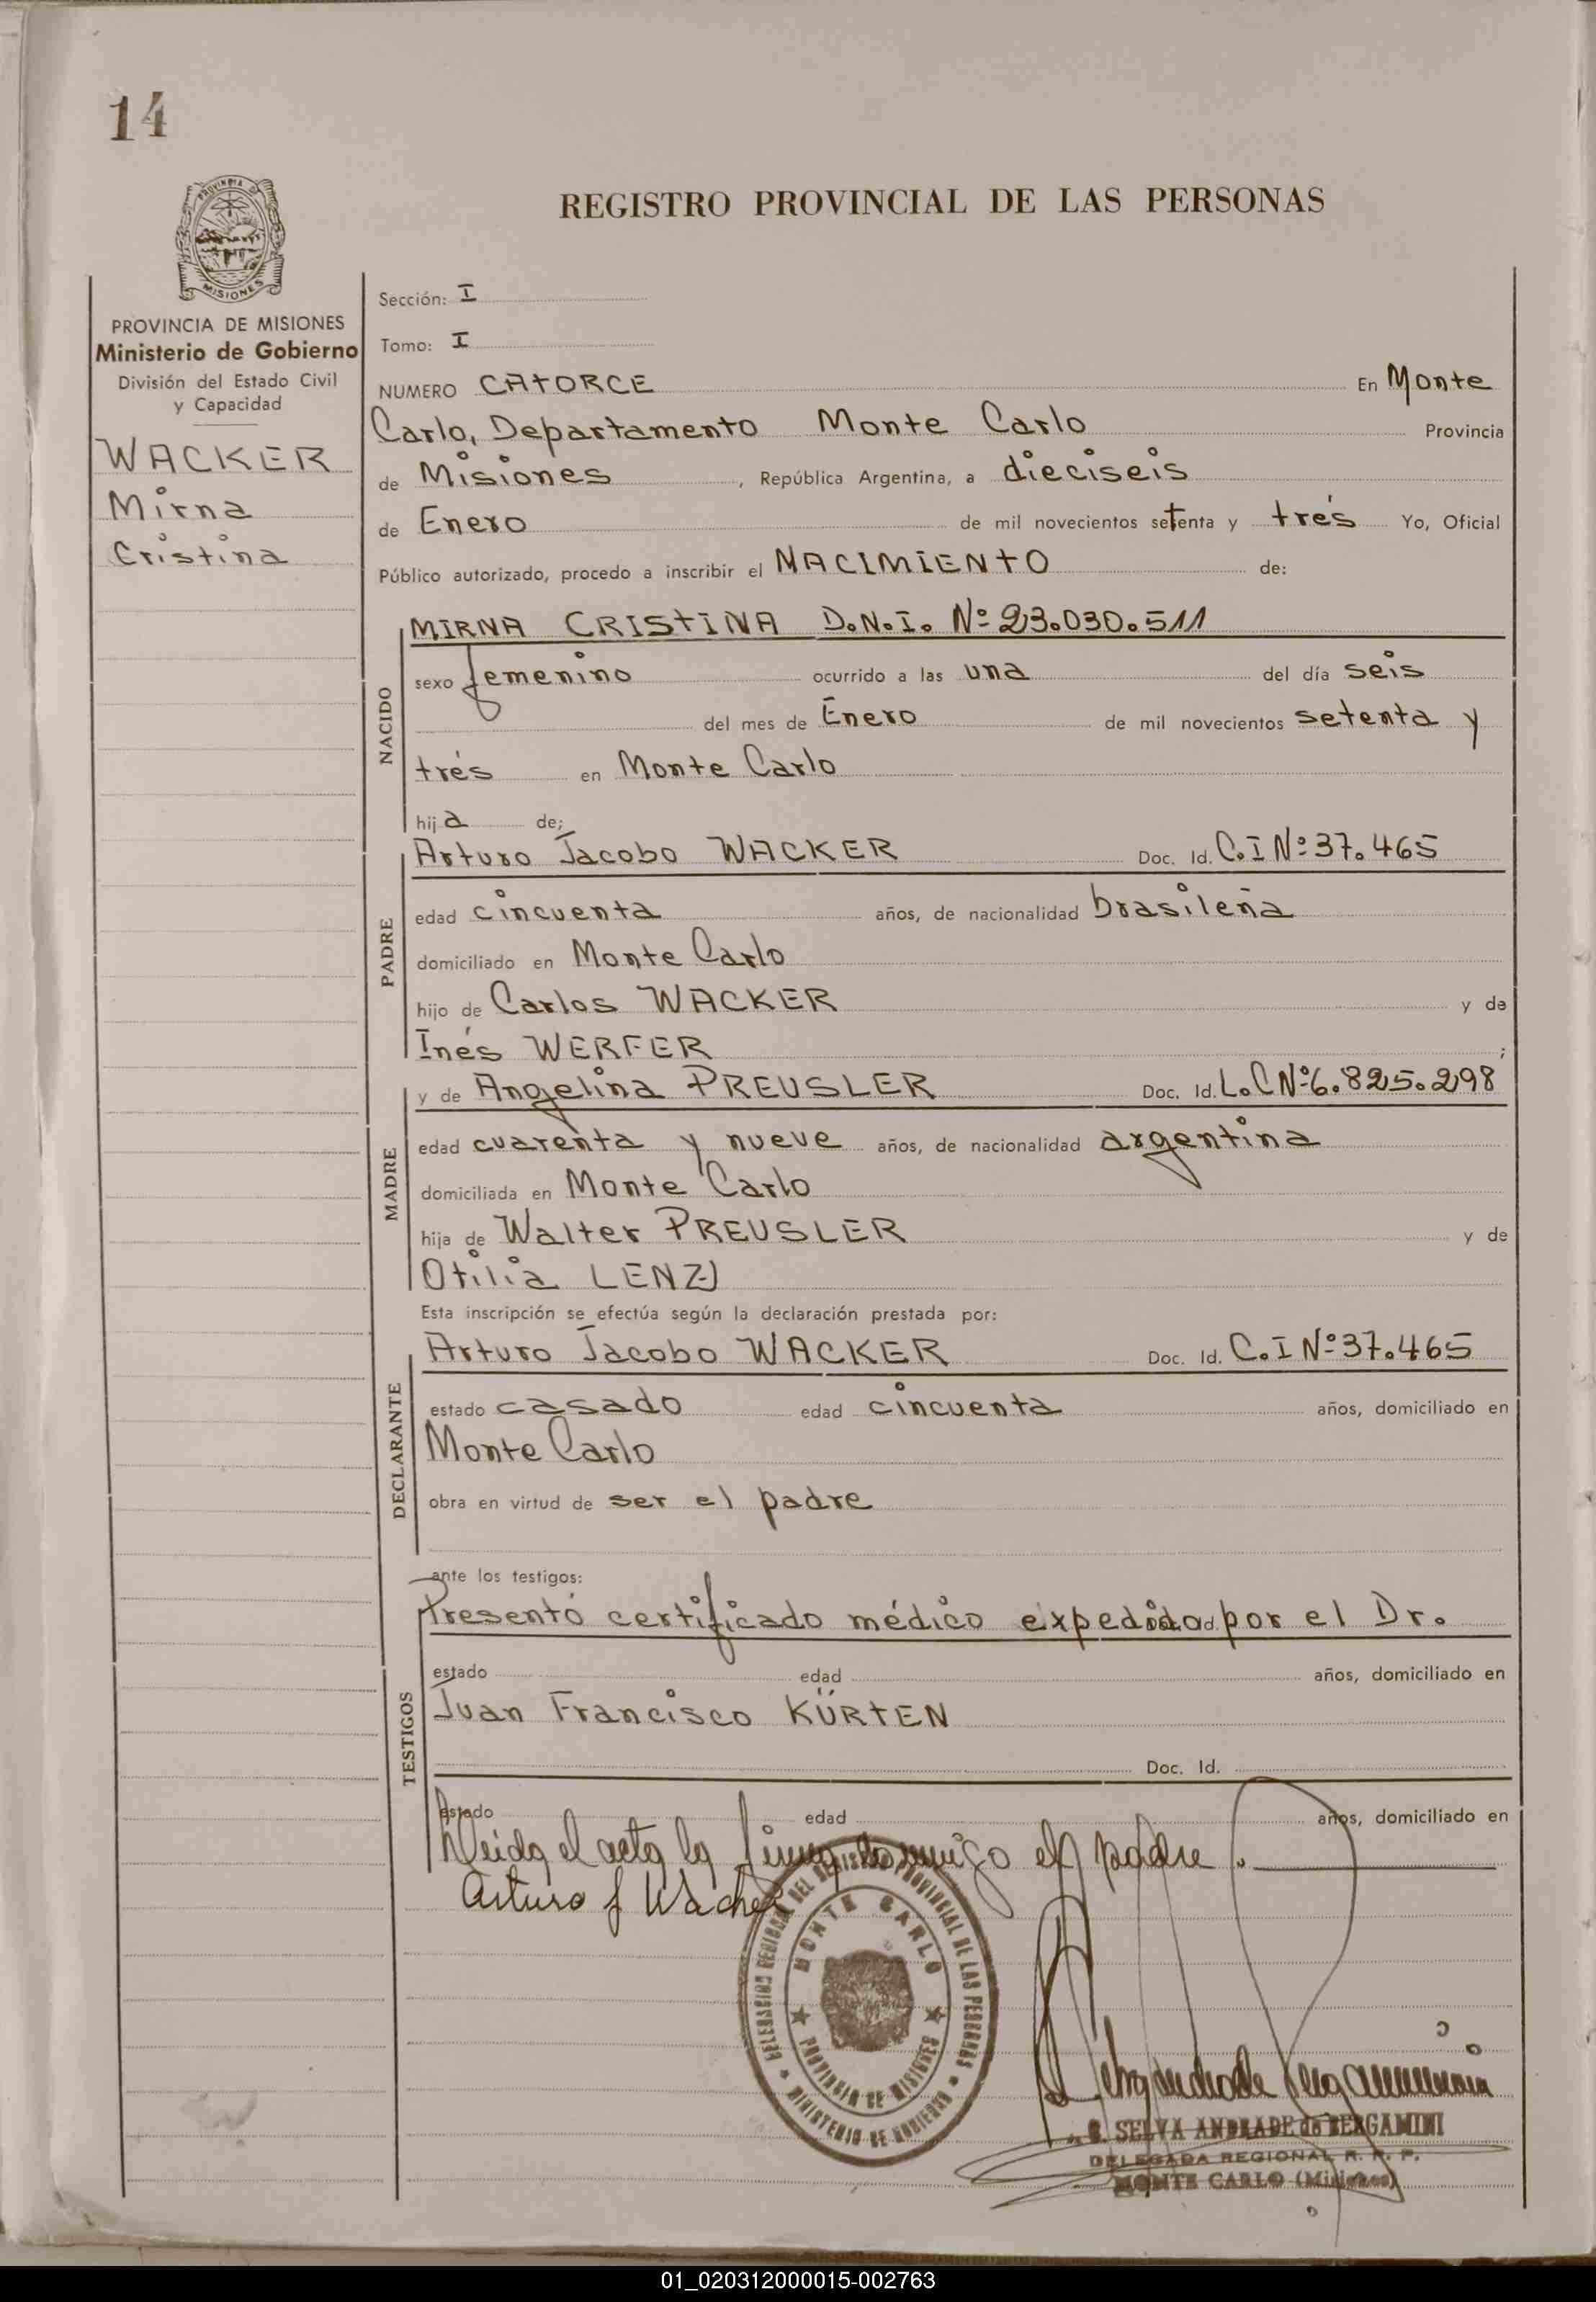 14
PROVINCIA DE
MISIONES
REGISTRO PROVINCIAL DE LAS PERSONAS
PROVINCIA DE MISIONES
Ministerio de Gobierno
División del Estado Civil
y Capacidad
WACKER
Mirna
Cristina
Sección: I
Tomo: I
NUMERO CATORCE En Monte
Carlo, Departamento Monte Carlo Provincia
de Misiones, República Argentina, a dieciseis
de Enero de mil novecientos setenta y trés Yo, Oficial
Público autorizado, procedo a inscribir el NACIMIENTO de:
NACIDO
MIRNA CRISTINA D.N.I. Nº 23.030.511
sexo femenino ocurrido a las una del día seis
del mes de Enero de mil novecientos setenta y
trés en Monte Carlo
hija de;
PADRE
Arturo Jacobo WACKER Doc. Id. C.I Nº 37.465
edad cincuenta años, de nacionalidad brasileña
domiciliado en Monte Carlo
hijo de Carlos WACKER y de
Inés WERFER ;
MADRE
y de Angelina PREUSLER Doc. Id. L.C Nº 6.825.298
edad cuarenta y nueve años, de nacionalidad argentina
domiciliada en Monte Carlo
hija de Walter PREUSLER y de
Otilia LENZ
Esta inscripción se efectúa según la declaración prestada por:
DECLARANTE
Arturo Jacobo WACKER Doc. Id. C.I Nº 37.465
estado casado edad cincuenta años, domiciliado en
Monte Carlo
obra en virtud de ser el padre
ante los testigos:
TESTIGOS
Presentó certificado médico expedido por el Dr.
estado edad años, domiciliado en
Juan Francisco KÜRTEN
Doc. Id.
estado edad años, domiciliado en
Leida el acta la firma conmigo el padre.
Arturo J Wacker
DELEGACION REGIONAL DEL REGISTRO PROVINCIAL DE LAS PERSONAS
MONTE CARLO
PROVINCIA DE MISIONES
MINISTERIO DE GOBIERNO
SELVA ANDRADE de BERGAMINI
DELEGADA REGIONAL R. P. P.
MONTE CARLO (Misiones)
01_020312000015-002763